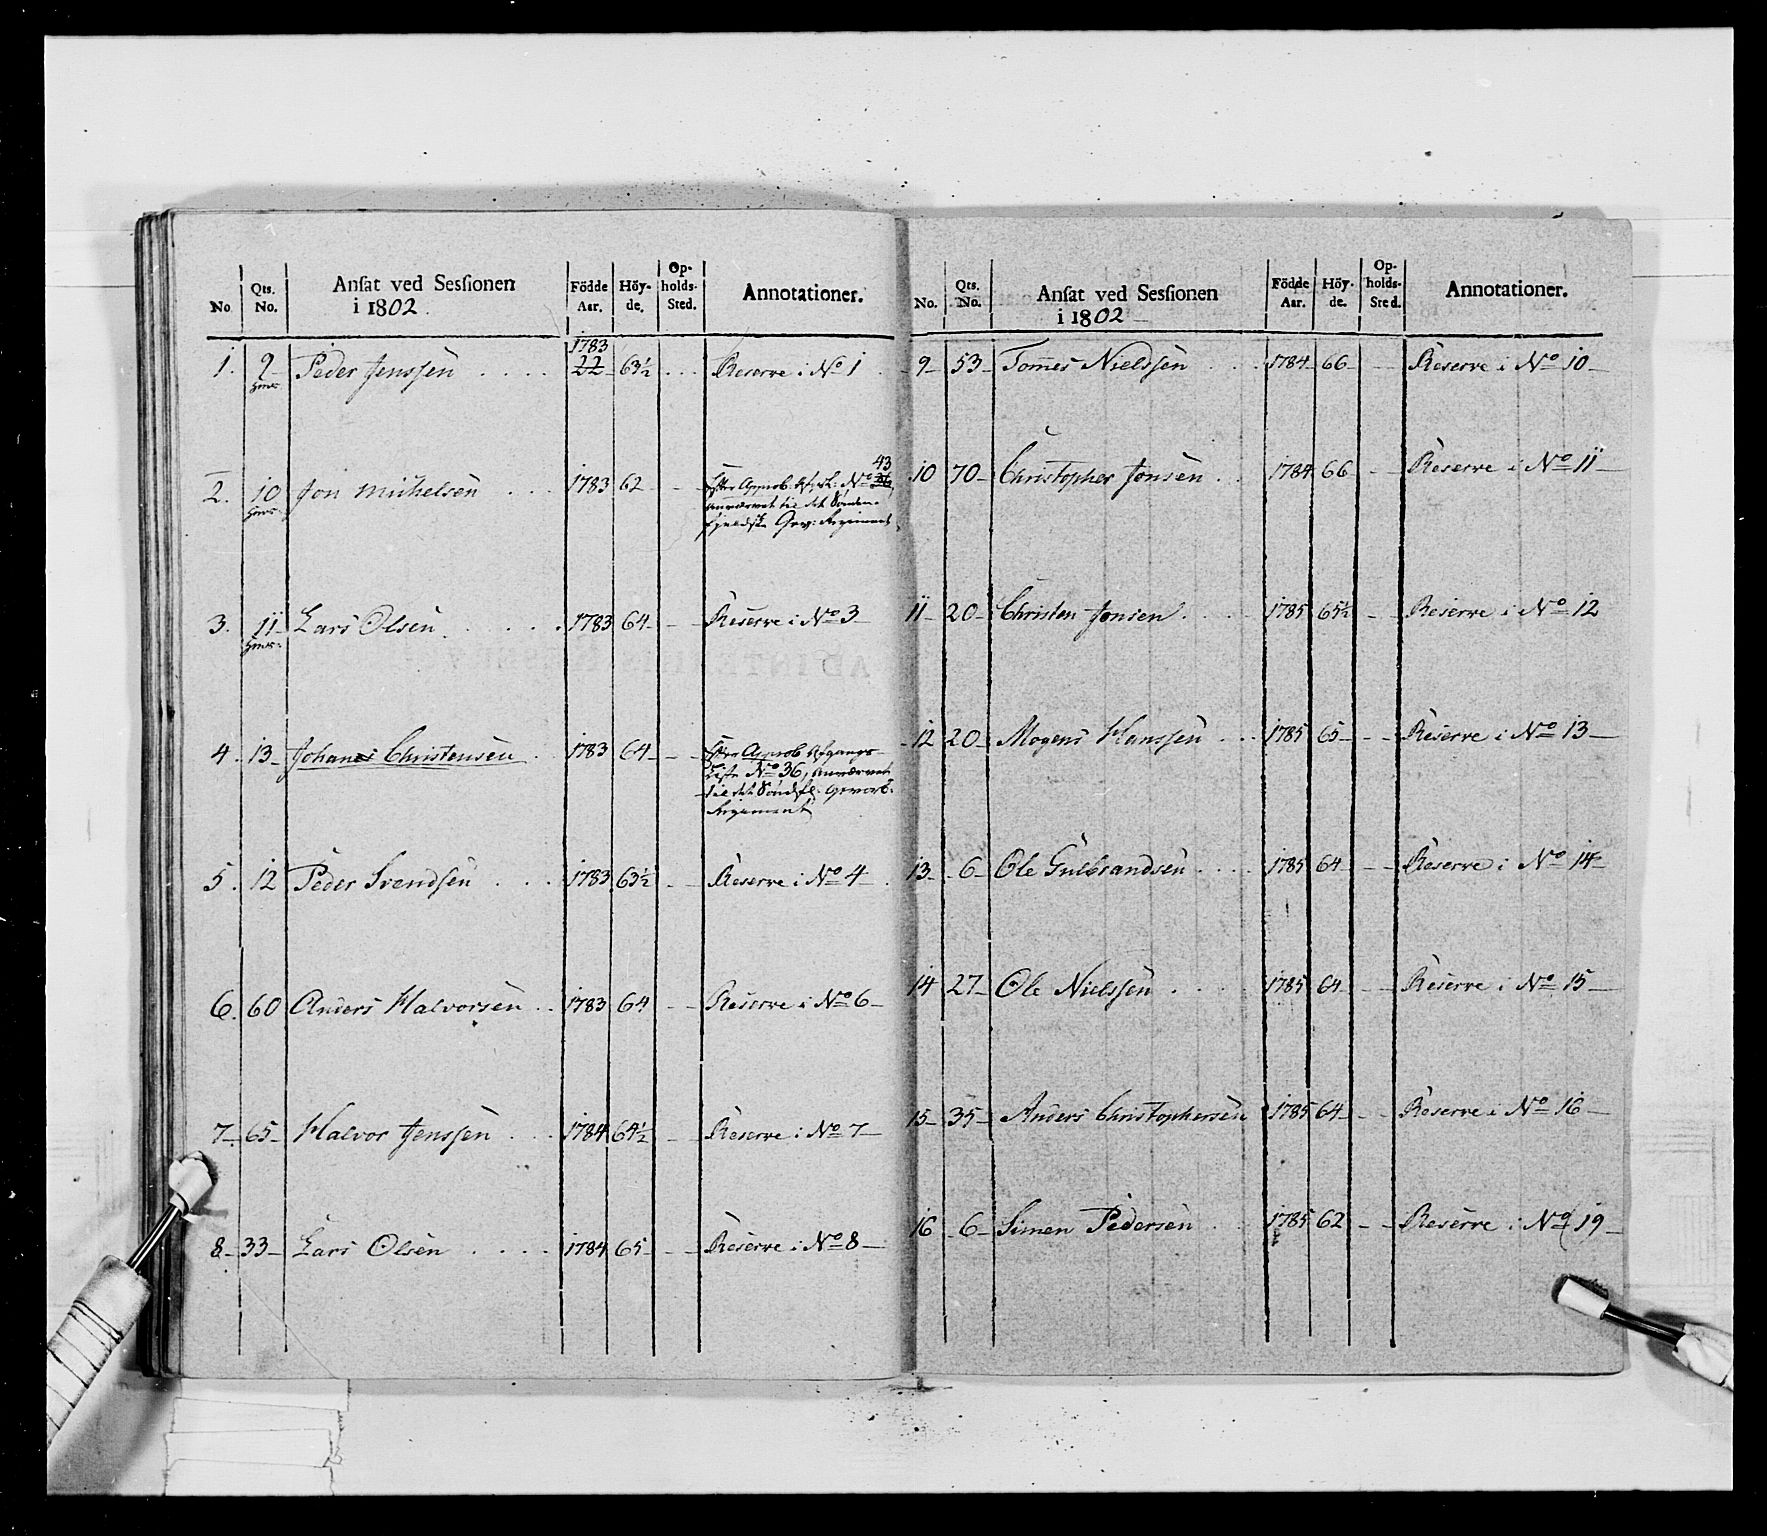 No. Qts. No. Ansat ved Sessionen i 1802. Födde Aar. Höyde. Opholds-Sted. Annotationer.
1. 9 Peder Jenssen . . . . 1783 22 63½ . . . Reserve i No 1
2. 10 Jon Michelsen . . . 1783 62 - - Efter Approb. No 43 36,
anværvet til det Sønden-
fjeldske Gev: Regiment
3. 11 Lars Olsen . . . . . 1783 64 - - Reserve i No 3
4. 13 Johanes Christensen . 1783 64 - - Efter Approb. Afgangs-
Liste No 36, anværvet
til det Søndfl. Gevorb.
Regiment
5. 12 Peder Svendsen . . . . 1783 63½ - - Reserve i No 4
6. 60 Anders Halvorsen . . 1783 64 - - Reserve i No 6
7 65 Halvor Jenssen . . . 1784 64½ - - Reserve i No 7
8 33 Lars Olsen . . . . . 1784 65 - - Reserve i No 8
No. Qts. No. Ansat ved Sessionen i 1802 Födde Aar. Höyde. Opholds-Sted. Annotationer.
9 53 Tomes Nielssen . . . 1784 66 - - Reserve i No 10
10 70 Christopher Jonsen . . 1784 66 - - Reserve i No 11
11 20 Christen Jonsen . . . . 1785 65½ - - Reserve i No 12
12 20 Mogens Hanssen . . . 1785 65 - - Reserve i No 13
13 6 Ole Gulbrandsen . . . . 1785 64 - - Reserve i No 14
14 27 Ole Nielssen . . . . 1785 64 - - Reserve i No 15
15 35 Anders Christophersen 1785 64 - - Reserve i No 16
16 6 Simen Pedersen . . 1785 62 - - Reserve i No 19